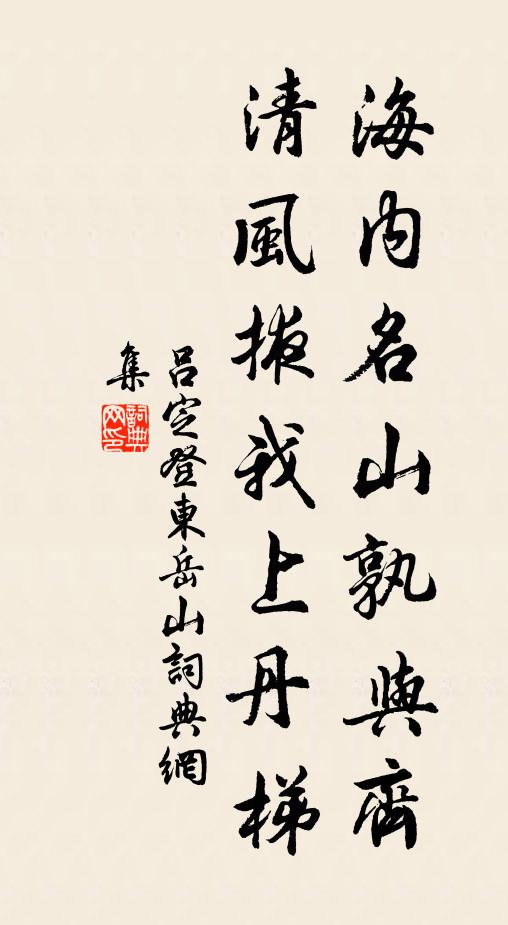 海内名山孰與齊
清風掖我上丹梯
吕定登東岳山詞典網
集
詞典網印